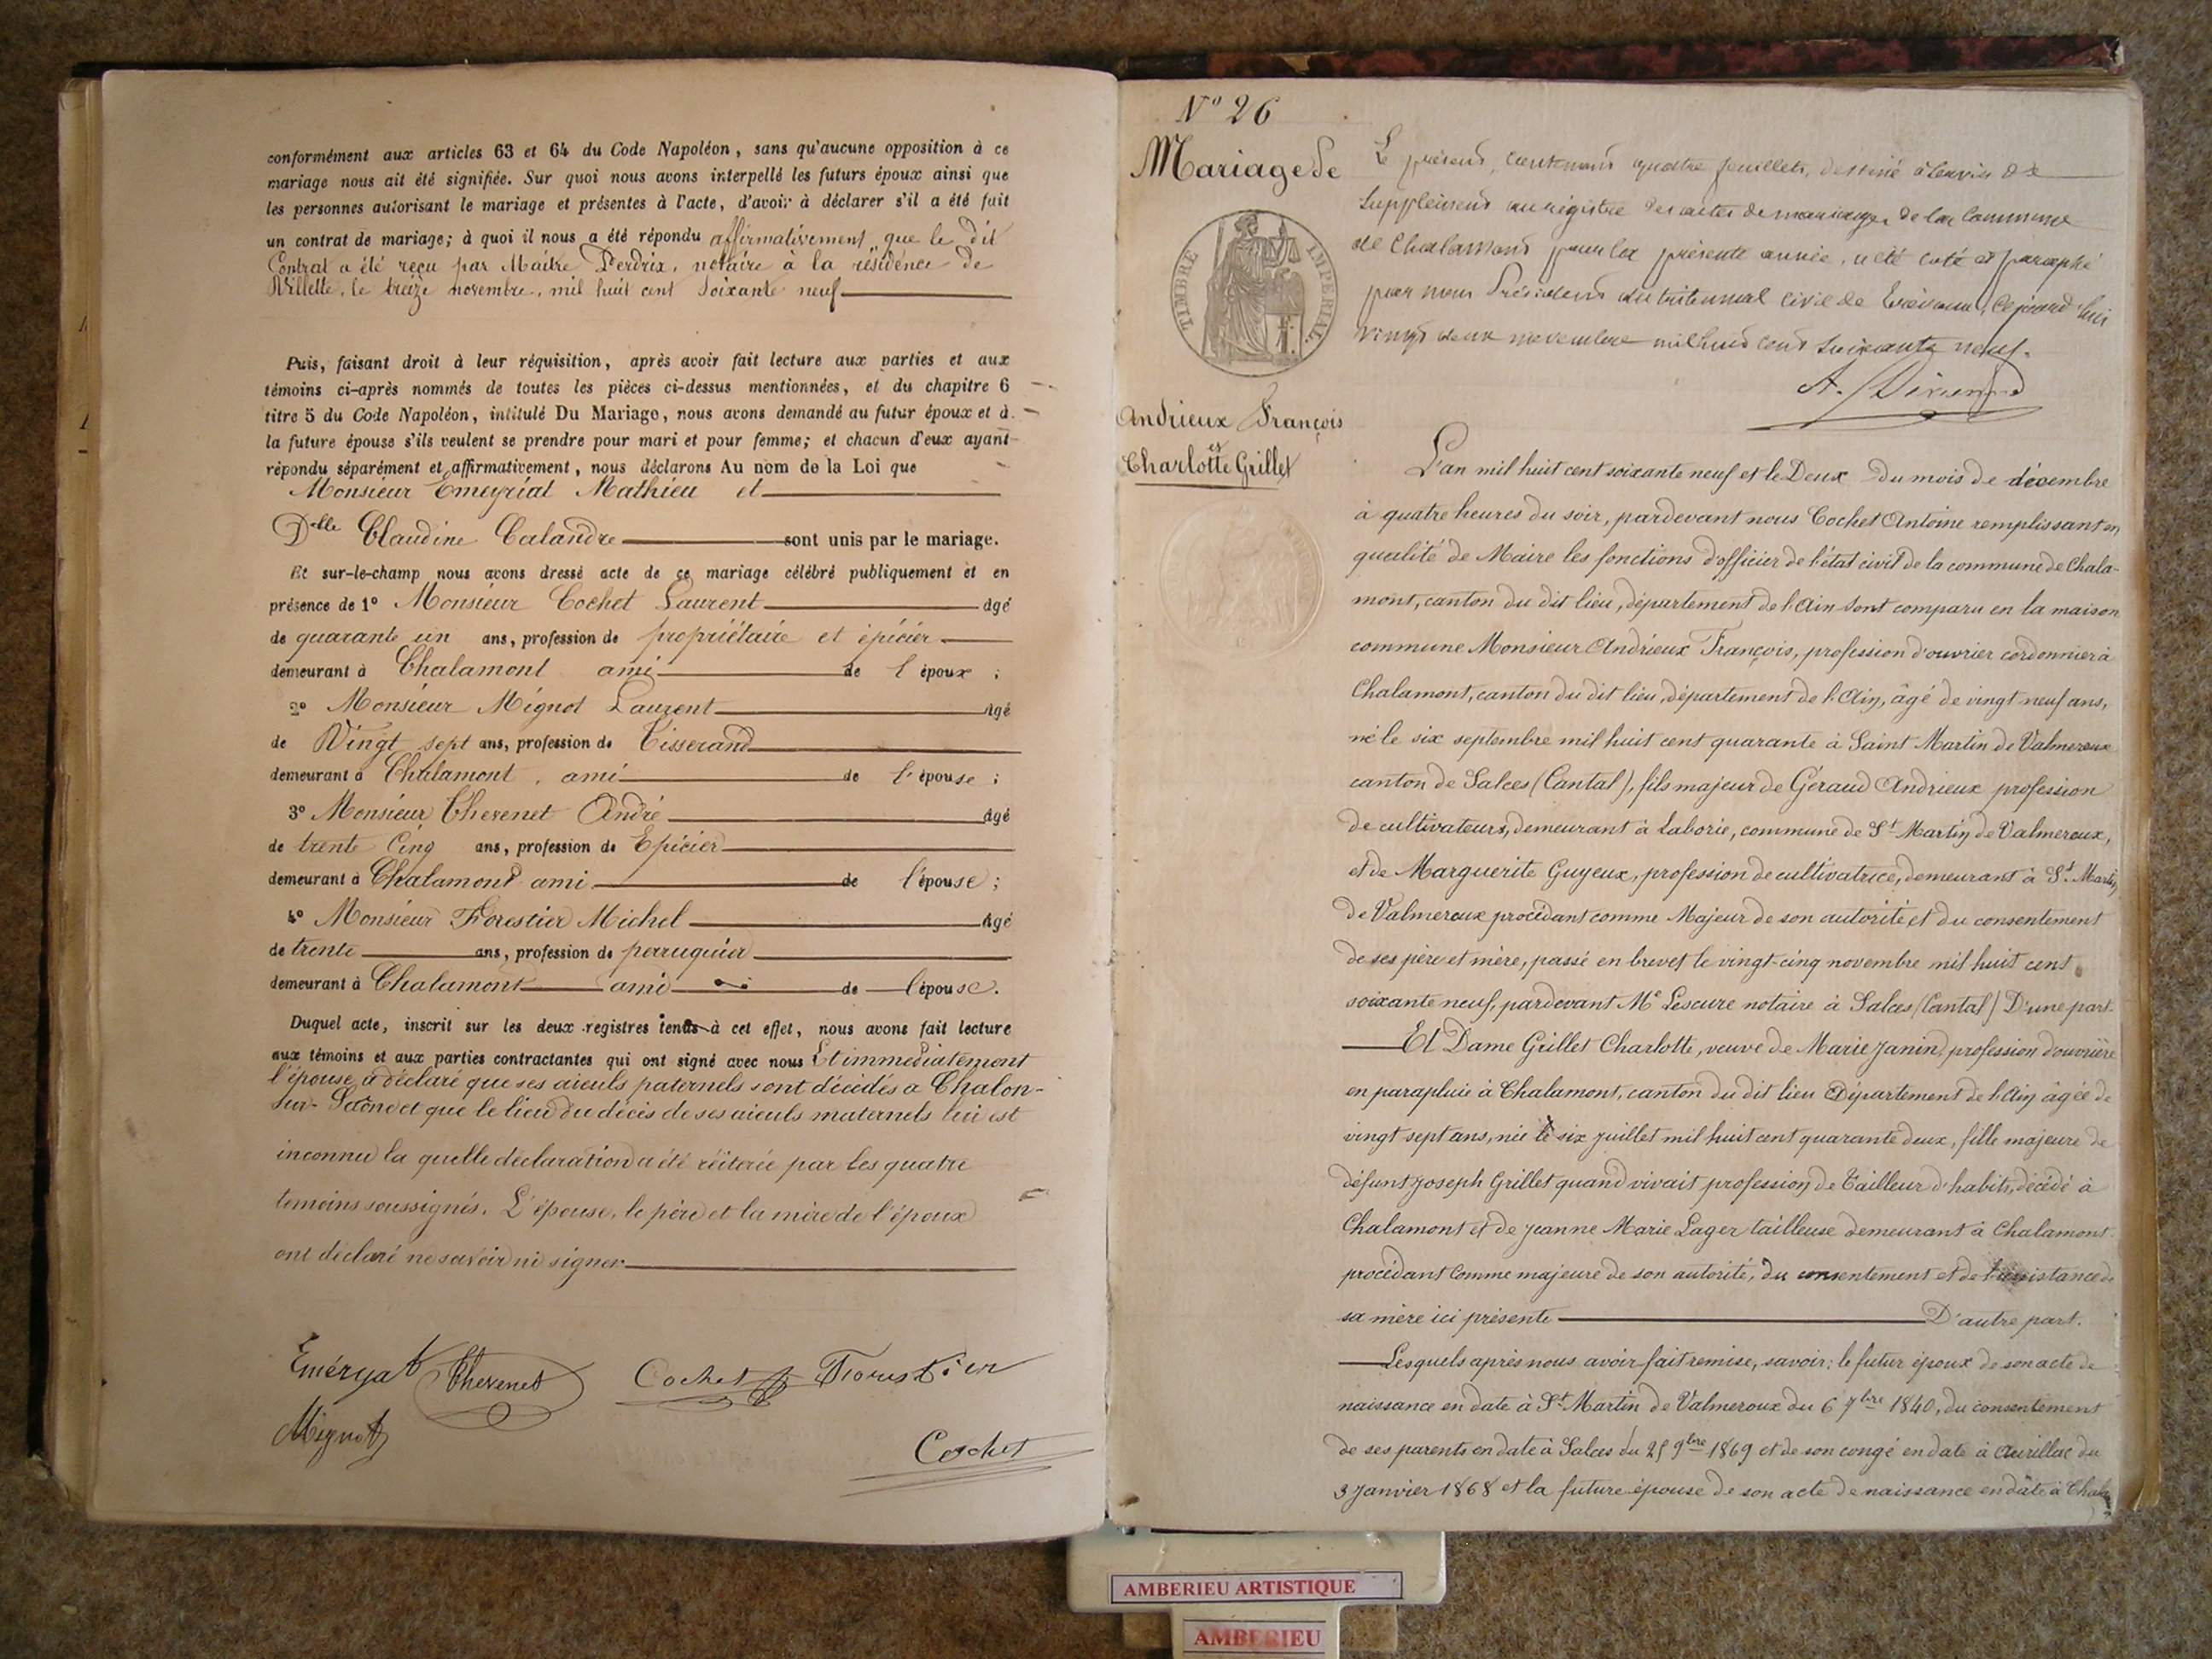 conformément aux articles 63 et 64 du Code Napoléon, sans qu'aucune opposition à ce
mariage nous ait été signifiée. Sur quoi nous avons interpellé les futurs époux ainsi que
les personnes autorisant le mariage et présentes à l'acte, d'avoir à déclarer s'il a été fait
un contrat de mariage; à quoi il nous a été répondu affirmativement, que le dit
Contrat a été reçu par Maitre Perdrix, notaire à la résidence de
Villette, le treize novembre, mil huit cent soixante neuf
Puis, faisant droit à leur réquisition, après avoir fait lecture aux parties et aux
témoins ci-après nommés de toutes les pièces ci-dessus mentionnées, et du chapitre 6
titre 5 du Code Napoléon, intitulé Du Mariage, nous avons demandé au futur époux et à
la future épouse s'ils veulent se prendre pour mari et pour femme; et chacun d'eux ayant
répondu séparément et affirmativement, nous déclarons Au nom de la Loi que
Monsieur Emeyriat Mathieu et
Delle Claudine Calandre sont unis par le mariage.
Et sur-le-champ nous avons dressé acte de ce mariage célébré publiquement et en
présence de 1º Monsieur Cochet Laurent âgé
de quarante un ans, profession de propriétaire et épicier
demeurant à Chalamont ami de l'époux ;
2º Monsieur Mignot Laurent âgé
de Vingt sept ans, profession de Tisserand
demeurant à Chalamont, ami de l'épouse ;
3º Monsieur Thevenet André âgé
de trente Cinq ans, profession de Epicier
demeurant à Chalamont ami de l'épouse ;
4º Monsieur Forestier Michel âgé
de trente ans, profession de perruquier
demeurant à Chalamont ami de l'épouse.
Duquel acte, inscrit sur les deux registres tenus à cet effet, nous avons fait lecture
aux témoins et aux parties contractantes qui ont signé avec nous Et immédiatement
l'épouse a déclaré que ses aieuls paternels sont décédés a Chalon-
sur-Saône et que le lieu du décès de ses aieuls maternels lui est
inconnu la quelle déclaration a été réiterée par les quatre
temoins soussignés. L'épouse, le père et la mère de l'époux
ont déclaré ne savoir ni signer
Eméryat Thevenet Cochet Forestier
Mignot
Cochet
Nº 26
Mariage de
TIMBRE IMPERIAL
Andrieux François
et
Charlotte Grillet
Le présent, contenant quatre feuillets, destiné à servir de
supplément au régistre des actes de mariages de la Commune
de Chalamont pour la présente année, a été coté et paraphé
par nous Président du tribunal civil de Trévoux, Cejourd'hui
vingt deux novembre mil huit cent soixante neuf.
L'an mil huit cent soixante neuf et le Deux du mois de décembre
à quatre heures du soir, pardevant nous Cochet Antoine remplissant en
qualité de Maire les fonctions d'officier de l'état civil de la commune de Chala-
mont, canton du dit lieu, département de l'Ain sont comparu en la maison
commune Monsieur Andrieux François, profession d'ouvrier cordonnier à
Chalamont, canton du dit lieu, département de l'Ain, âgé de vingt neuf ans,
né le six septembre mil huit cent quarante à Saint Martin de Valmeroux
canton de Salces (Cantal), fils majeur de Géraud Andrieux profession
de cultivateurs, demeurant à Laborie, commune de St Martin de Valmeroux,
et de Marguerite Guyeux, profession de cultivatrice, demeurant à St Martin
de Valmeroux procédant comme Majeur de son autorité et du consentement
de ses père et mère, passé en brevet le vingt-cinq novembre mil huit cent
soixante neuf, pardevant Me Lescure notaire à Salces (Cantal) D'une part.
Et Dame Grillet Charlotte, veuve de Marie Janin, profession d'ouvrière
en parapluie à Chalamont, canton du dit lieu Département de l'Ain âgée de
vingt sept ans, née le six juillet mil huit cent quarante deux, fille majeure de
défunt Joseph Grillet quand vivait profession de Tailleur d'habits, décédé à
Chalamont et de Jeanne Marie Lager tailleuse demeurant à Chalamont
procédant Comme majeure de son autorité, du consentement et de l'assistance de
sa mère ici présente D'autre part.
Lesquels après nous avoir fait remise, savoir: le futur époux de son acte de
naissance en date à St Martin de Valmeroux du 6 7bre 1840, du consentement
de ses parents en date à Salces du 25 9bre 1869 et de son congé en date à Aurillac du
3 Janvier 1868 et la future épouse de son acte de naissance en date à Chala
AMBERIEU ARTISTIQUE
AMBERIEU